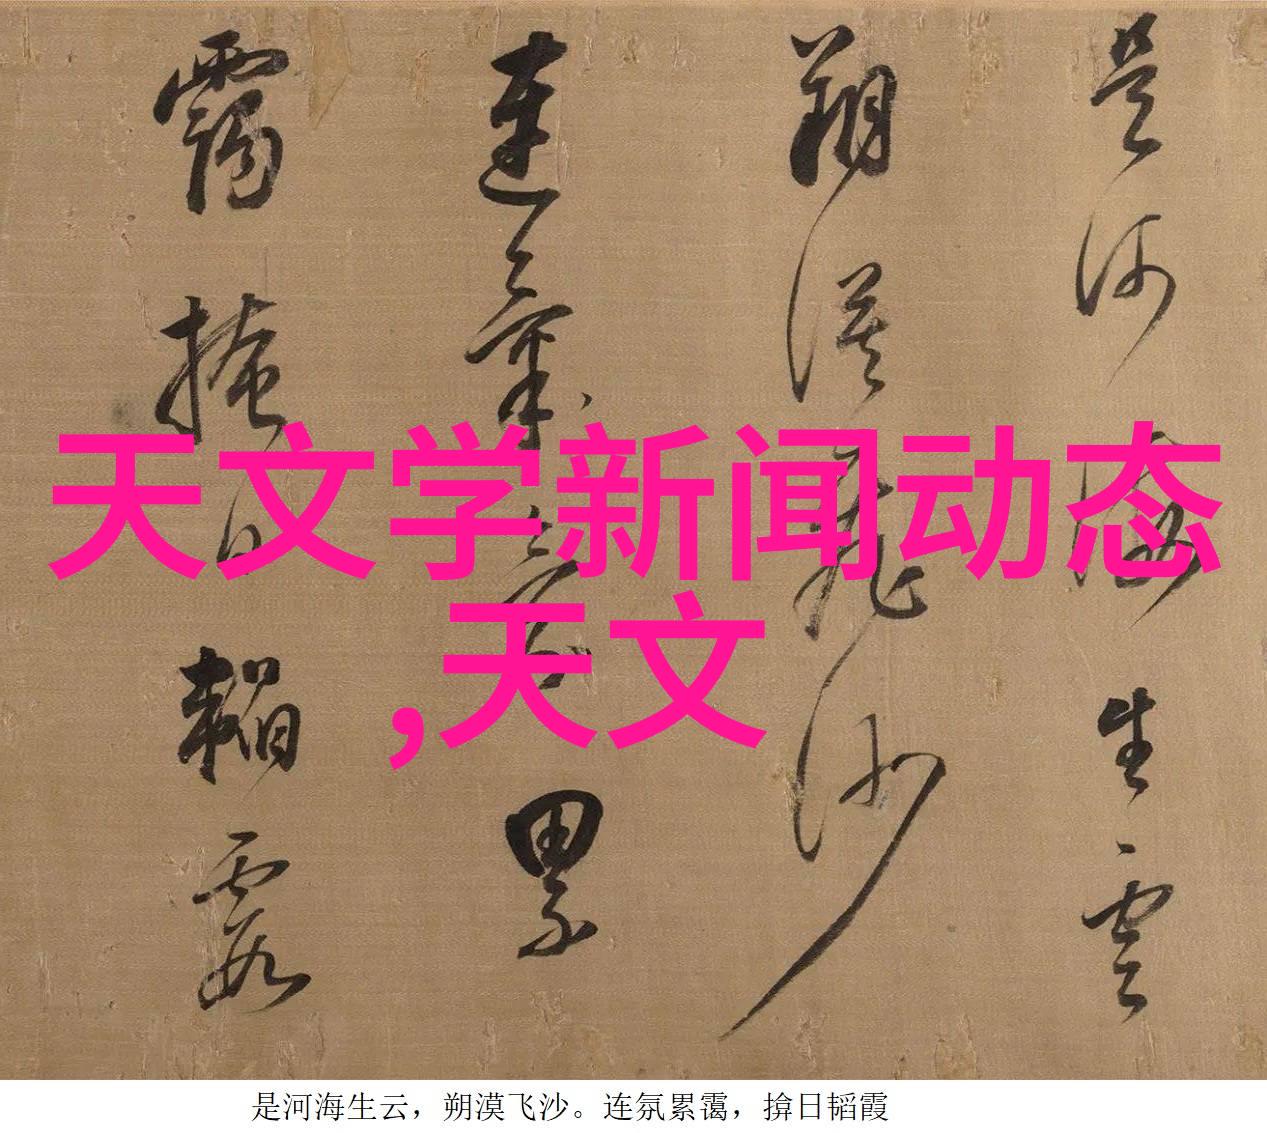 是河海生雲
朔漠飛沙
連氣氛累
靄掩日韜霞
天文学新闻动态
,天文
是河海生云，朔漠飞沙。连氛累霭，揜日韬霞